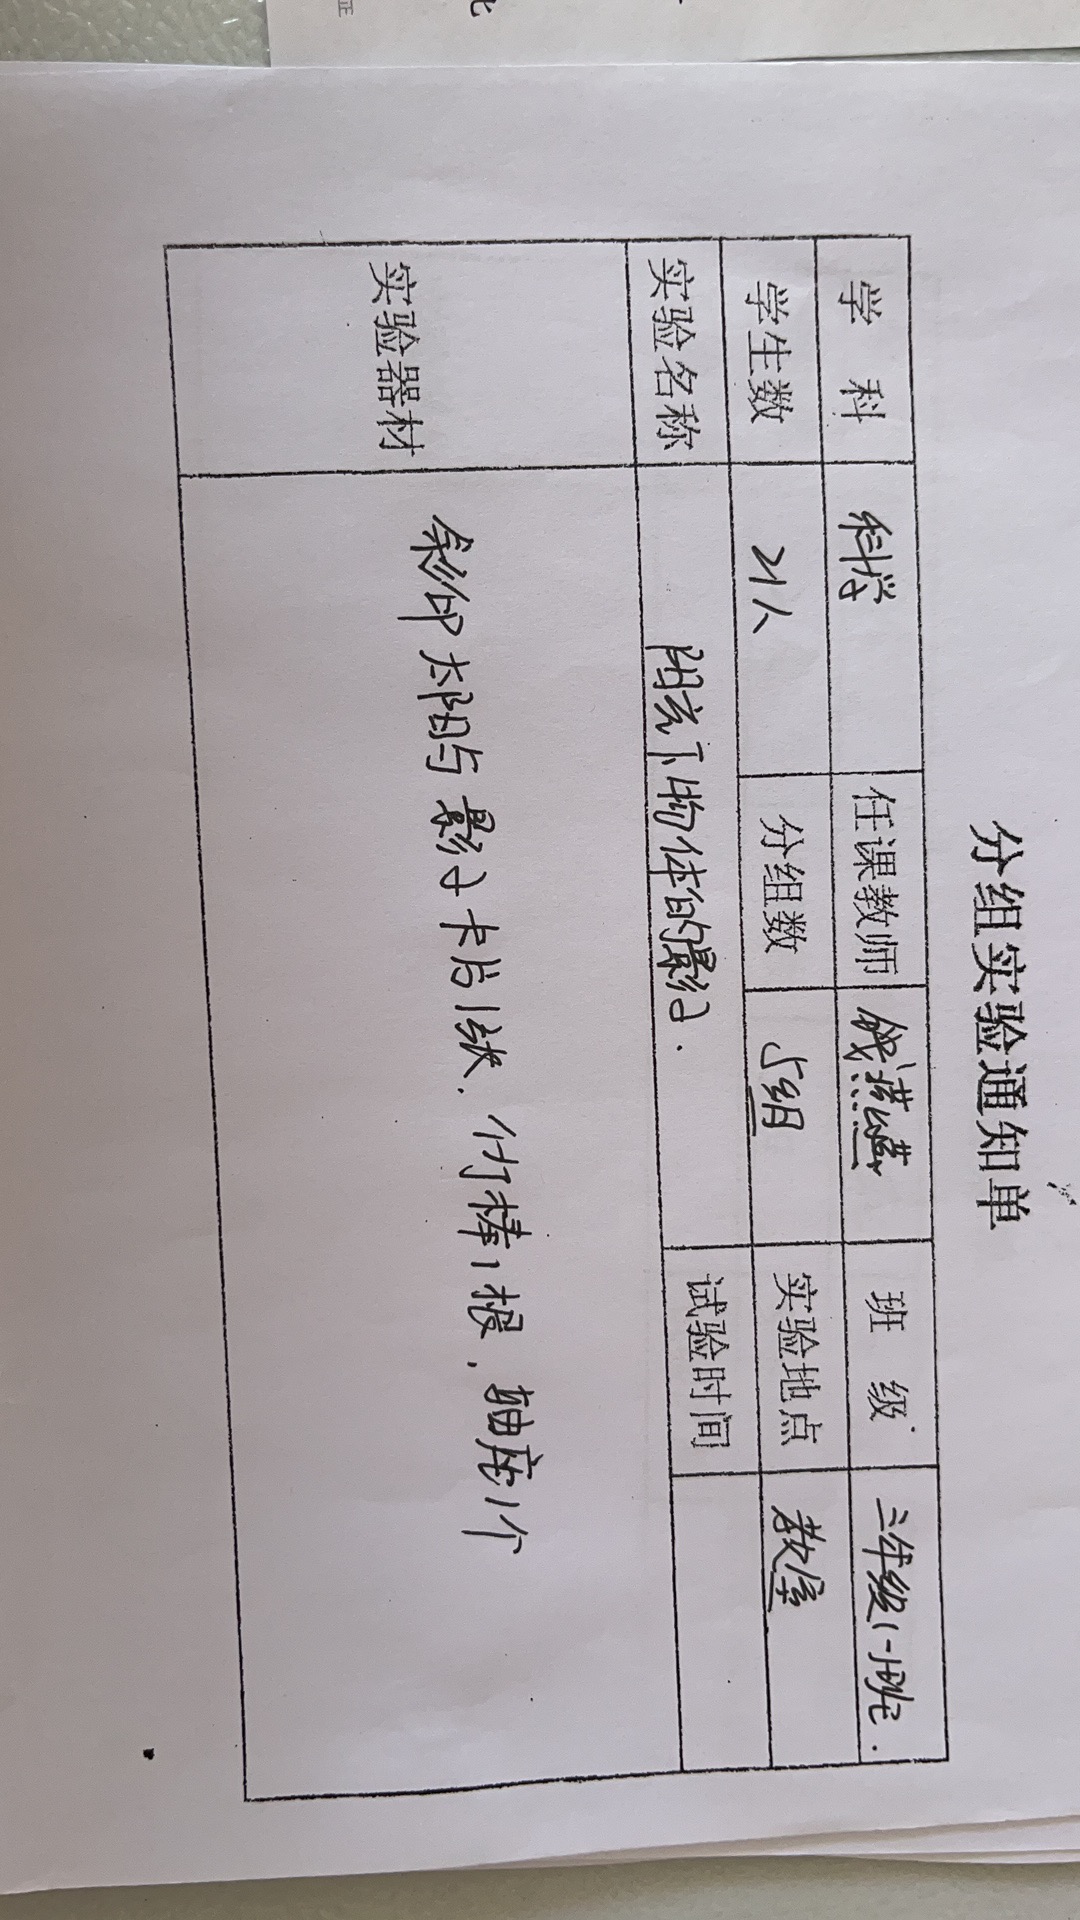 分组实验通知单
学 科 科学 任课教师 钱燕燕 班 级 三年级(一)班.
学生数 21人 分组数 5组 实验地点 教室
实验名称 阳光下物体的影子. 试验时间
实验器材 彩印太阳与影子卡片1张. 竹棒1根, 轴座1个